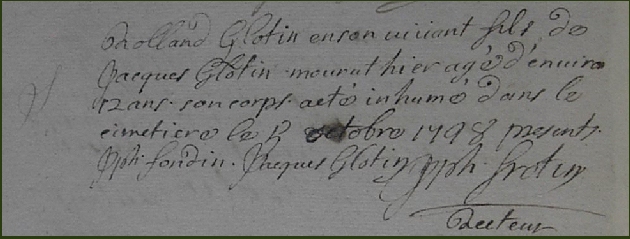 Rolland Glotin enson vivant fils de
Jacques Glotin mourut hier agé d'enviro
12 ans. son corps aeté inhumé dans le
cimetiere le octobre 1798 presents.
Jph. fondin. Jacques Glotin Jph.
Recteur